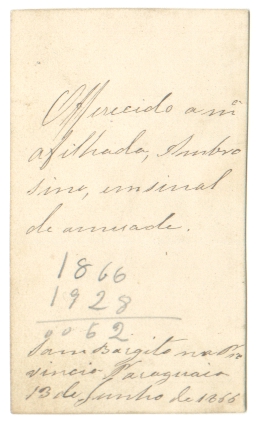 Offerecido a mª
afilhada, Ambro
sina, em sinal
de amisade.
1866
1928
0062
na Pro
vincia Paraguaia
13 de Junho de 1866